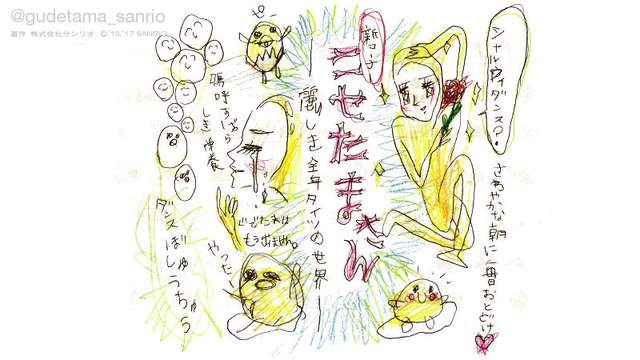 @gudetama_sanrio
著作 株式会社サンリオ ©'13,'17 SANRIO
シャルウィダンス?
新コーナー
ニセたまさん
―麗しき全身タイツの世界―
さわやかな朝に毎日おとどけ
嗚呼すばら
しき栄養
ぐでたまは
もう出ません。
やった
ダンスぼしゅうちゅう